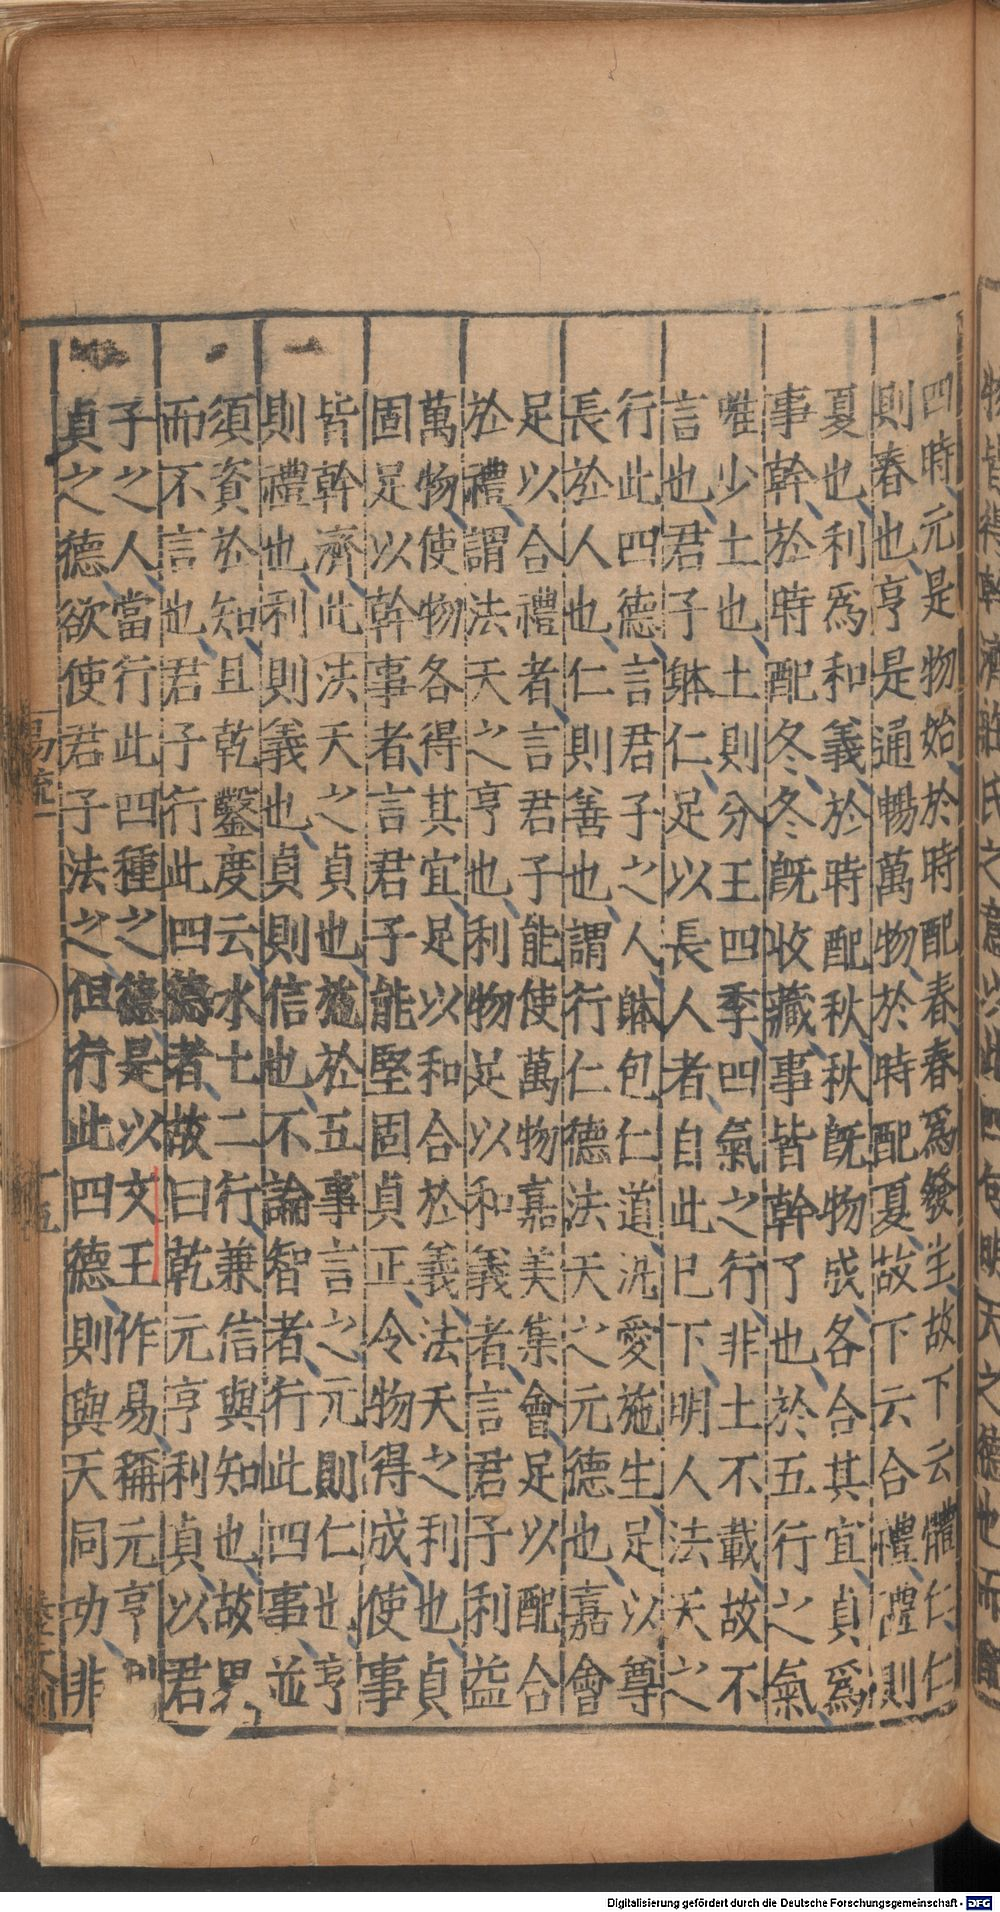 四時元是物始於時配春春為發生故下云體仁仁
則春也亨是通暢萬物於時配夏故下云合禮禮則
夏也利為和義於時配秋秋既物成各合其宜貞為
事幹於時配冬冬既收藏事皆幹了也於五行之氣
唯少土也土則分王四季四氣之行非土不載故不
言也君子躰仁足以長人者自此已下明人法天之
行此四德言君子之人躰包仁道汎愛施生足以尊
長於人也仁則善也謂行仁德法天之元德也嘉會
足以合禮者言君子能使萬物嘉美集會足以配合
於禮謂法天之亨也利物足以和義者言君子利益
萬物使物各得其宜足以和合於義法天之利也貞
固足以幹事者言君子能堅固貞正令物得成使事
皆幹濟此法天之貞也施於五事言之元則仁也亨
則禮也利則義也貞則信也不論智者行此四事並
須資於知且乾鑿度云水土二行兼信與知也故畧
而不言也君子行此四德者故曰乾元亨利貞以君
子之人當行此四種之德是以文王作易稱元亨利
貞之德欲使君子法之但行此四德則與天同功非
易疏一
十五
Digitalisierung gefördert durch die Deutsche Forschungsgemeinschaft - DFG